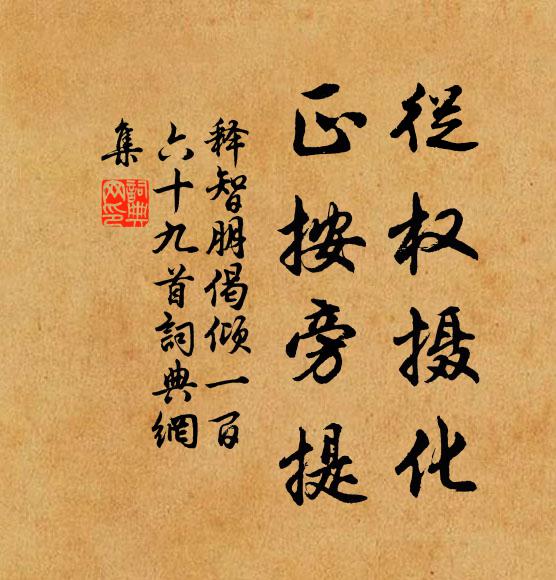 從权摄化
正按旁提
释智朋偈倾一百
六十九首詞典網
集
詞典網印